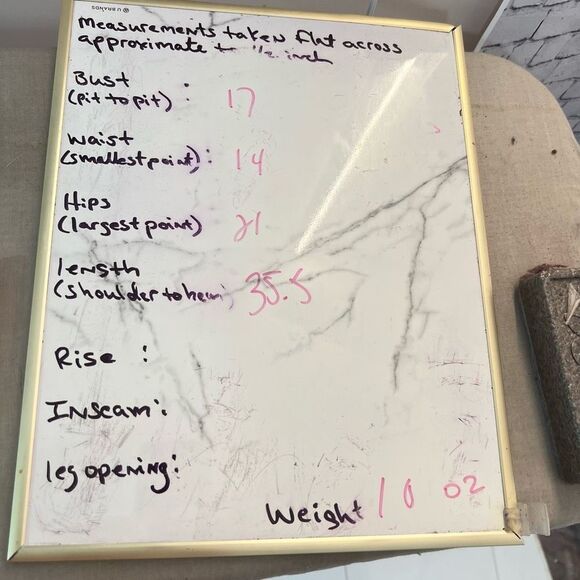 U BRANDS
Measurements taken flat across
approximate to 1/2 inch
Bust
(pit to pit) : 17
Waist
(smallest point) : 14
Hips
(largest point) 21
length
(shoulder to hem) 35.5
Rise :
Inseam :
leg opening :
Weight 10 oz